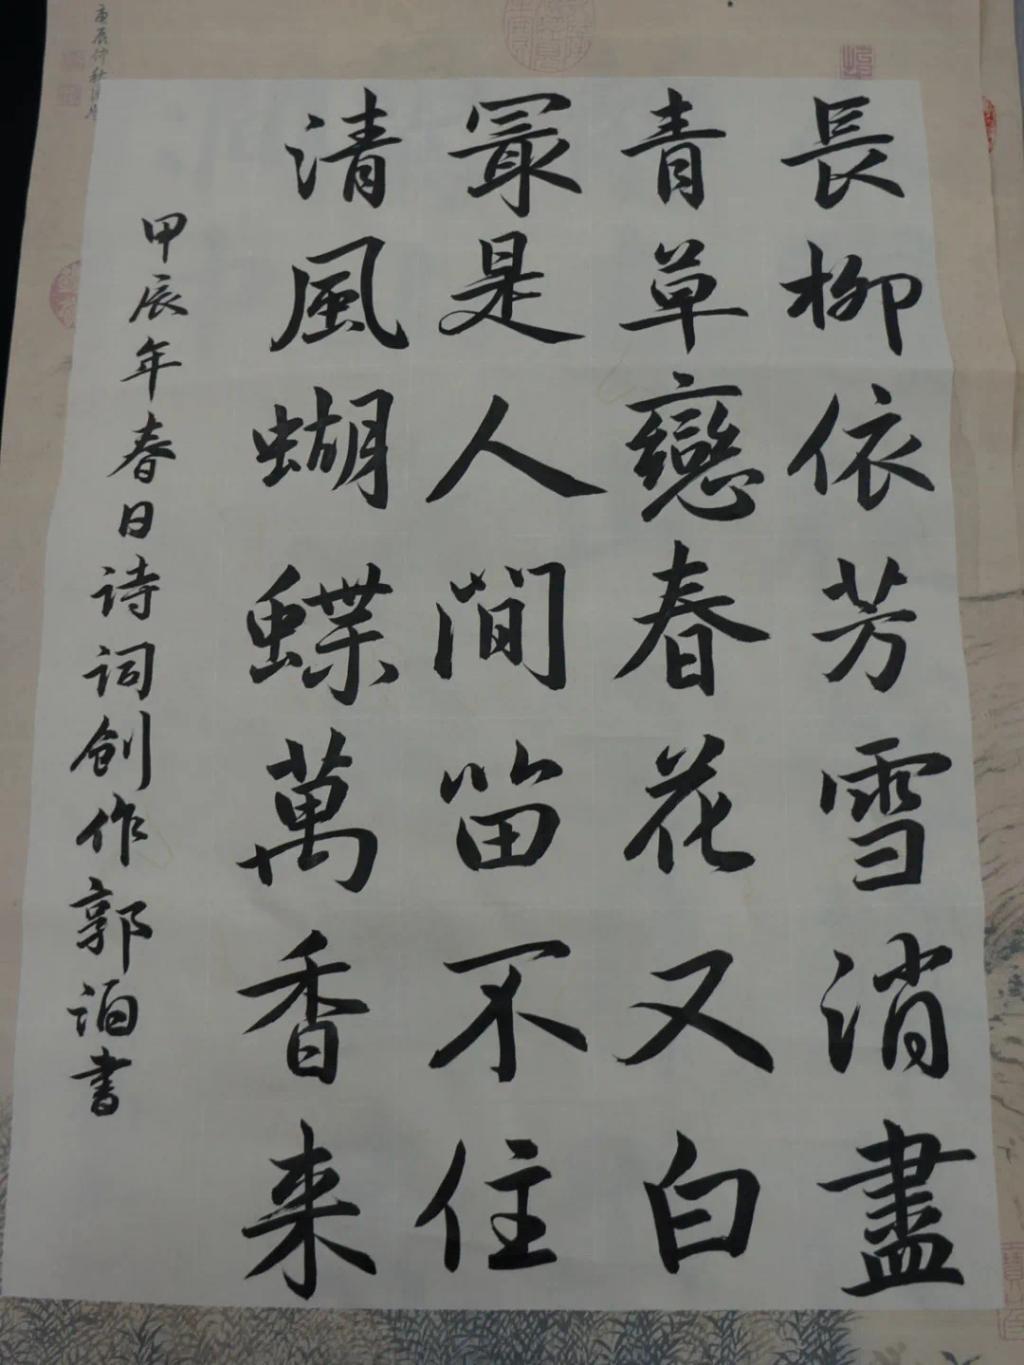 長柳依芳雪消盡
青草戀春花又白
最是人間笛不住
清風蝴蝶萬香来
甲辰年春日诗词创作郭泊書